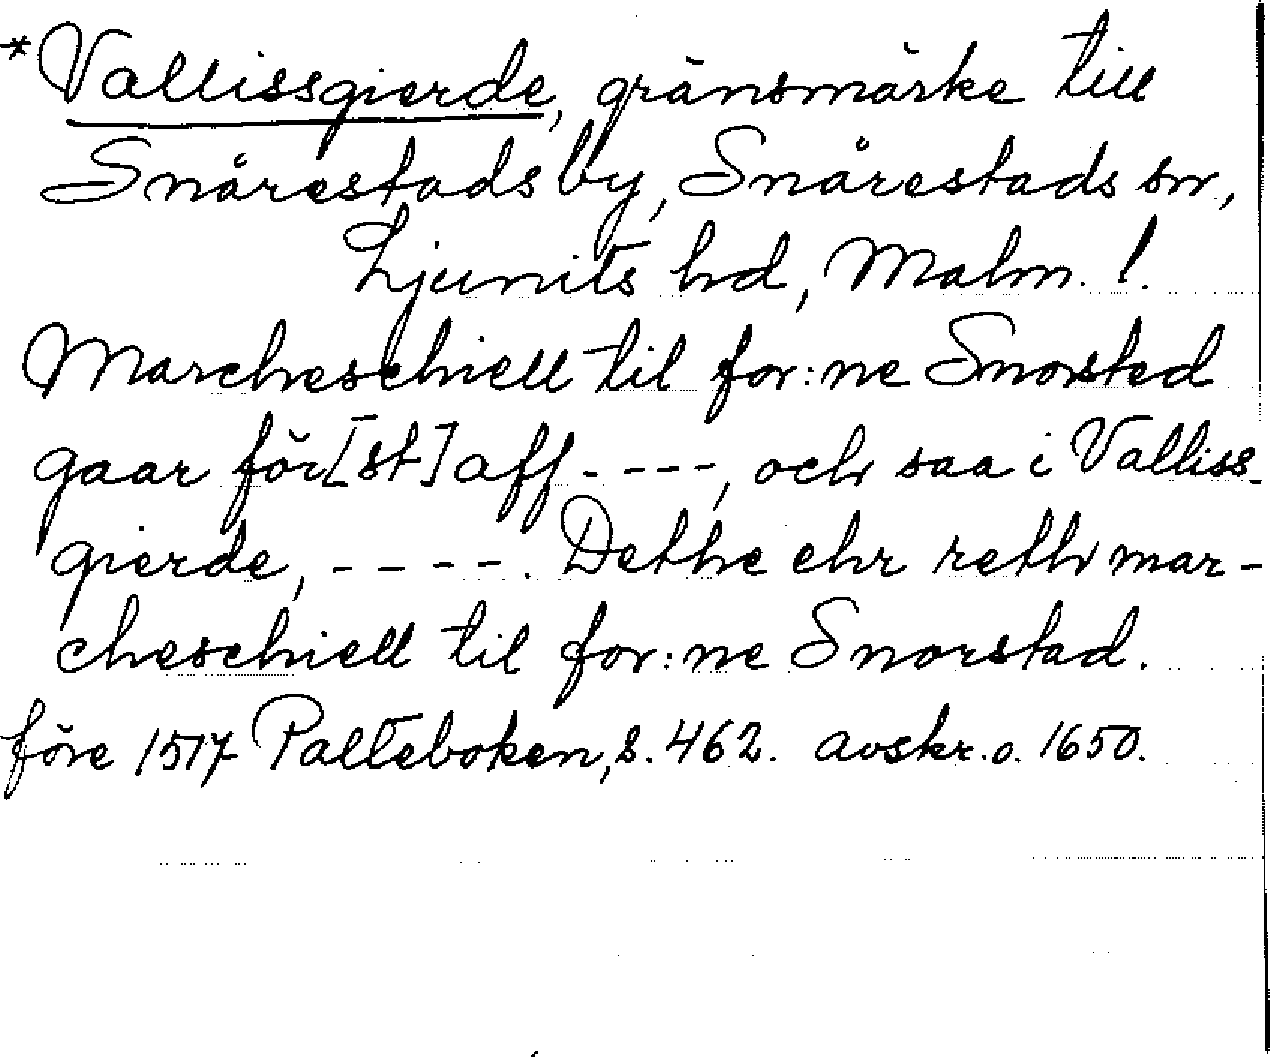 *Vallissgierde, gränsmärke till
Snårestads by, Snårestads sn,
Ljunits hd, Malm. l.
Marcheschiell til for:ne Snorsted
gaar för[st] aff - - - -, och saa i Valliss-
gierde, - - - - . Dethe ehr reth mar-
cheschiell til for:ne Snorstad.
före 1517 Palteboken, s. 462. avskr. o. 1650.